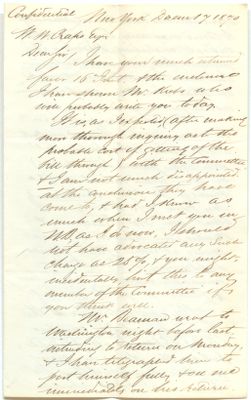 Confidential New York Decem 17 1870
W. W. Crapo Esq
Dear Sir
I have your much esteemed
favor 15 Inst. & the enclosed
I have shown Mr. who
will probably write you to day.
It is as I (after making
more through inquiry as to the
probable cost of getting of the
Bill through with the Committee
& I am not much disappointed
at the conclusion they have
come to, & had I known as
much when I met you in
as I do now, I should
not have advocated any such
change as 25% & you might,
incidentally, hint this to any
member of the Committee if
you think well.
Mr. went to
Washington night before last
intending to return on Monday,
& I have telegraphed him to
post himself fully, & see me
immediately on his return.